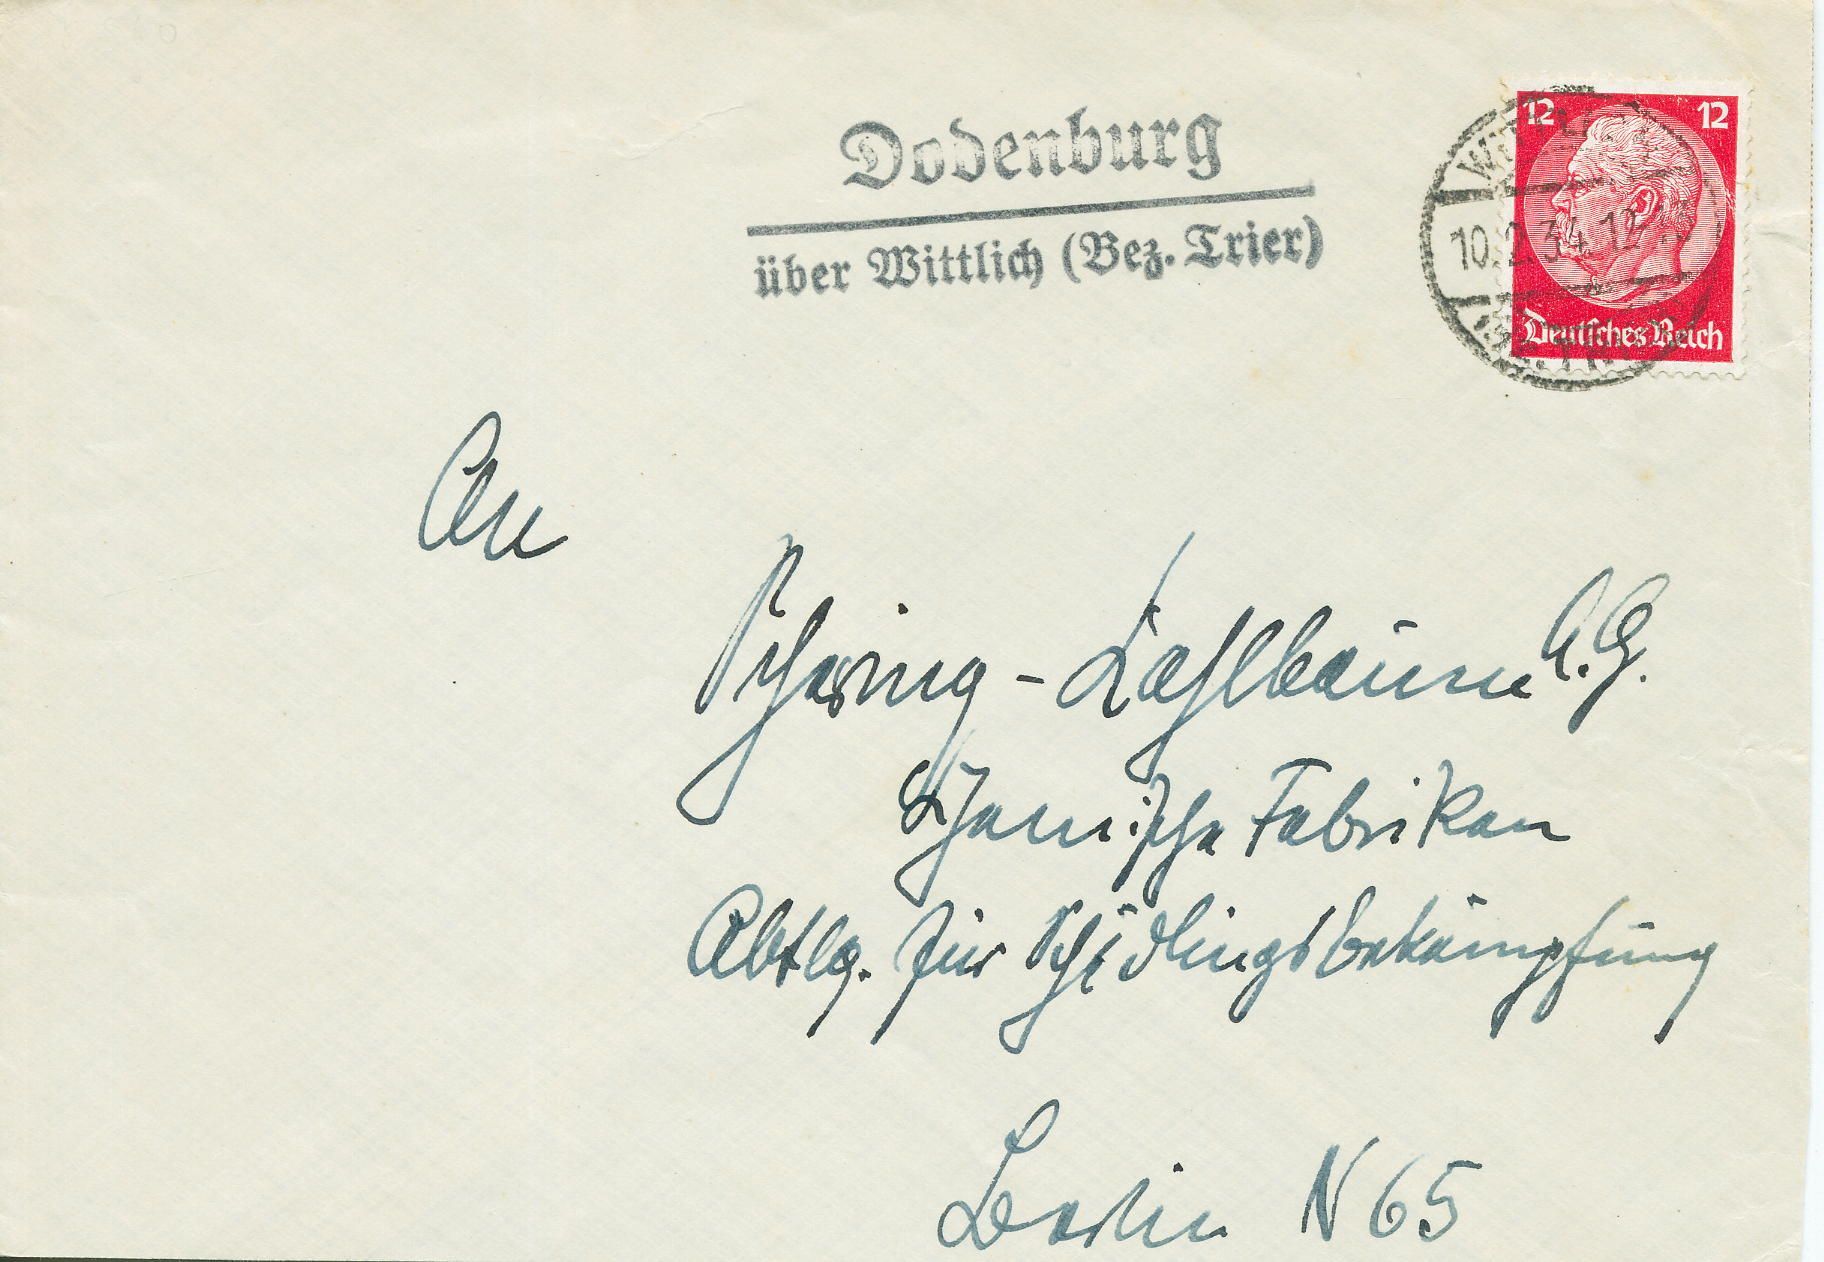 Dodenburg
über Wittlich (Bez. Trier)
12 12
10.2.34.12
Deutsches Reich
An
Schering-Kahlbaum A.G.
Chemische Fabriken
Abtlg. für Schädlingsbekämpfung
Berlin N 65